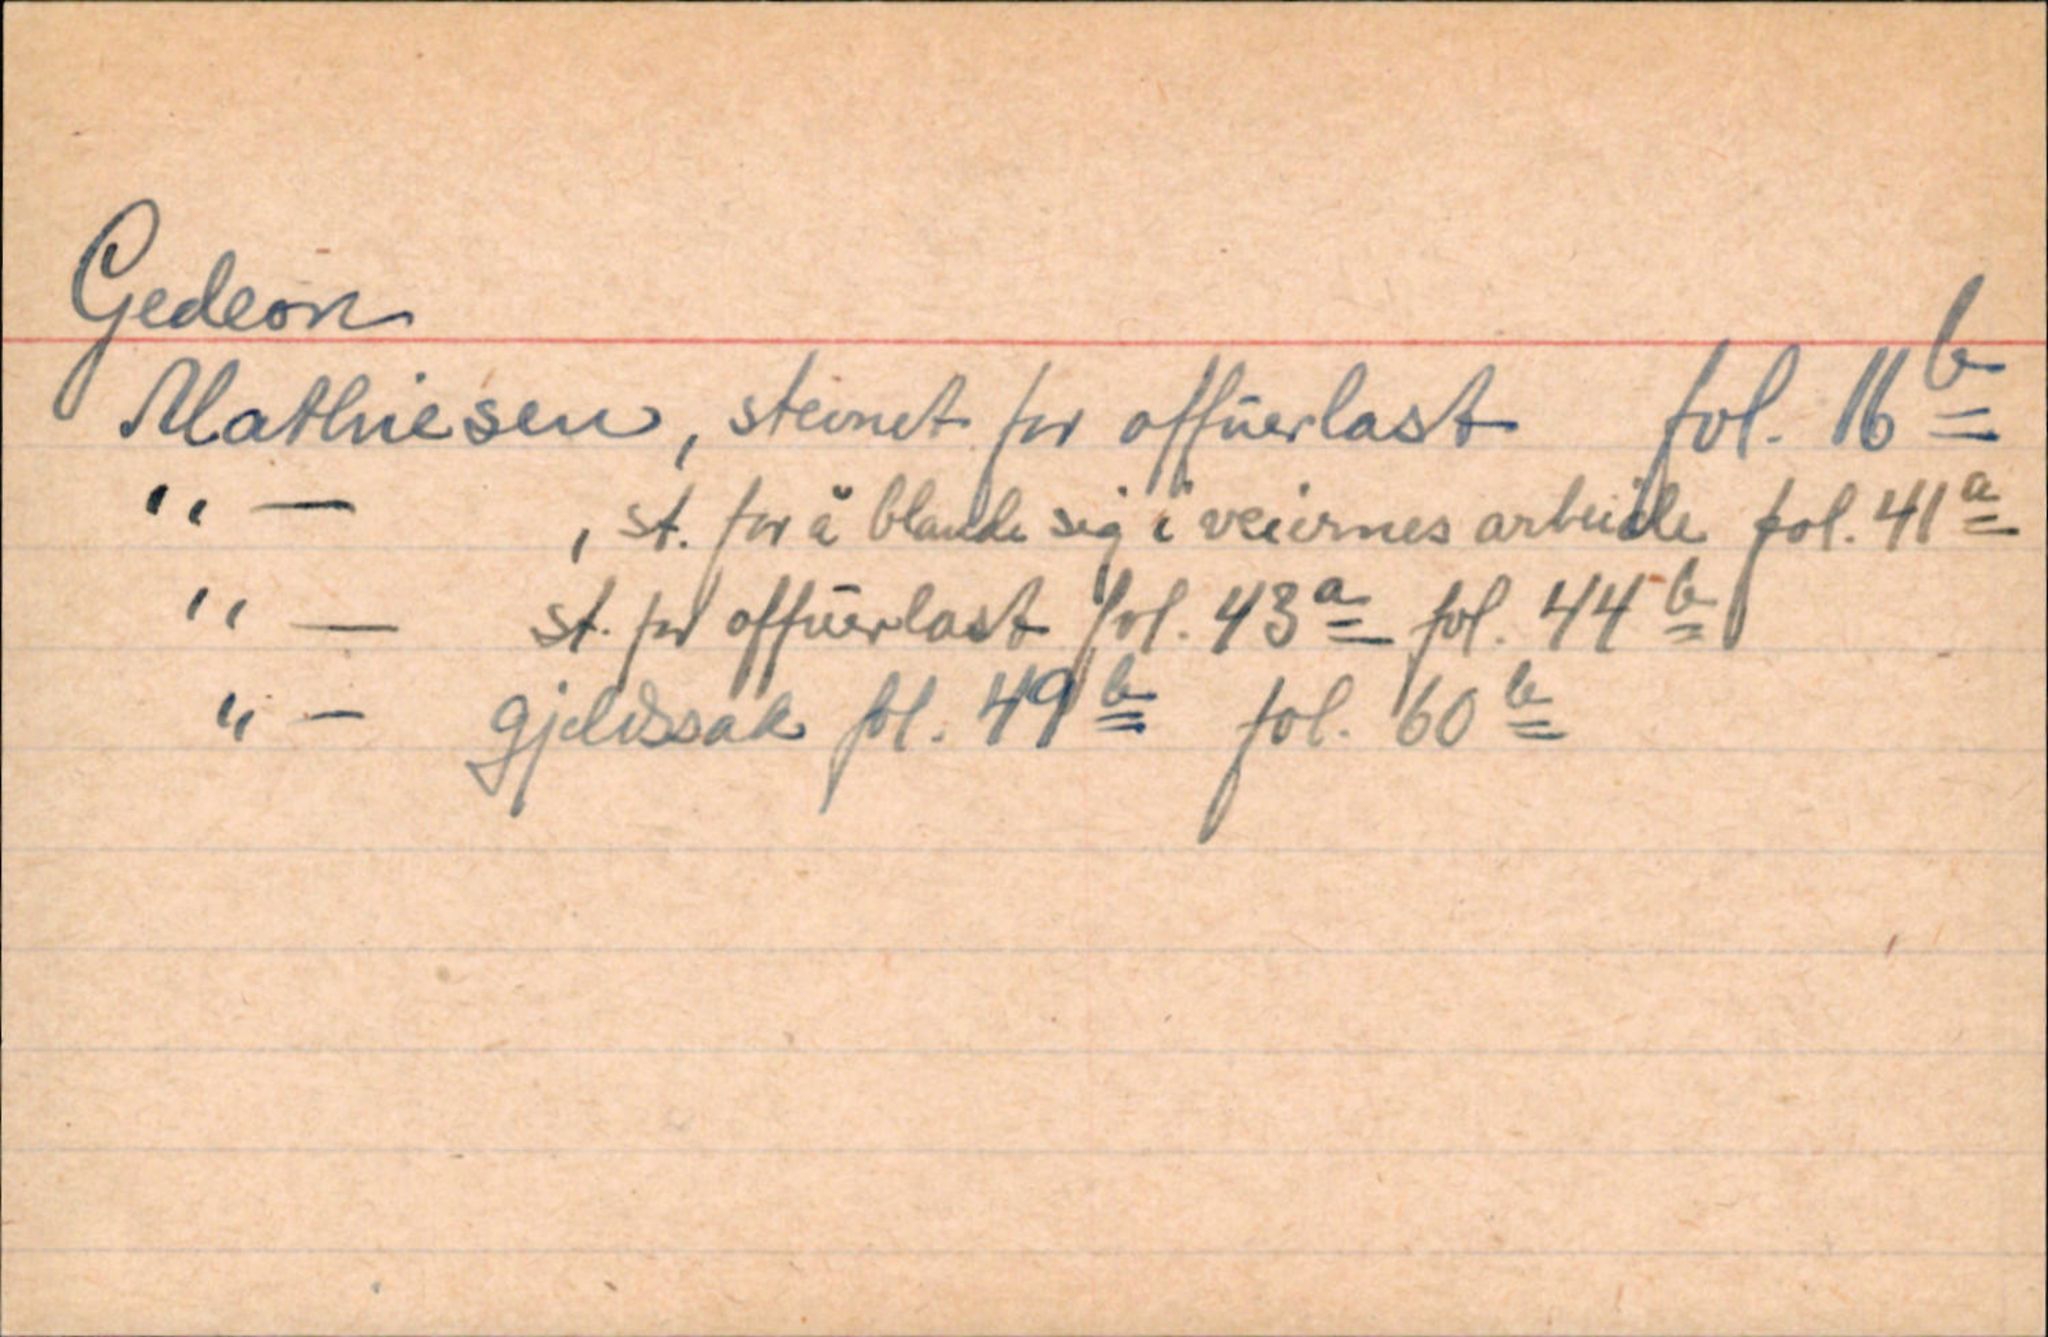 Gedeon
Mathiesen, stevnet for offuerlast fol. 16b
" — , st. for å blande sig i veiernes arbeide fol. 41a
" — st. for offuerlast fol. 43a fol. 44b
" — gjeldssak fol. 49b fol. 60b